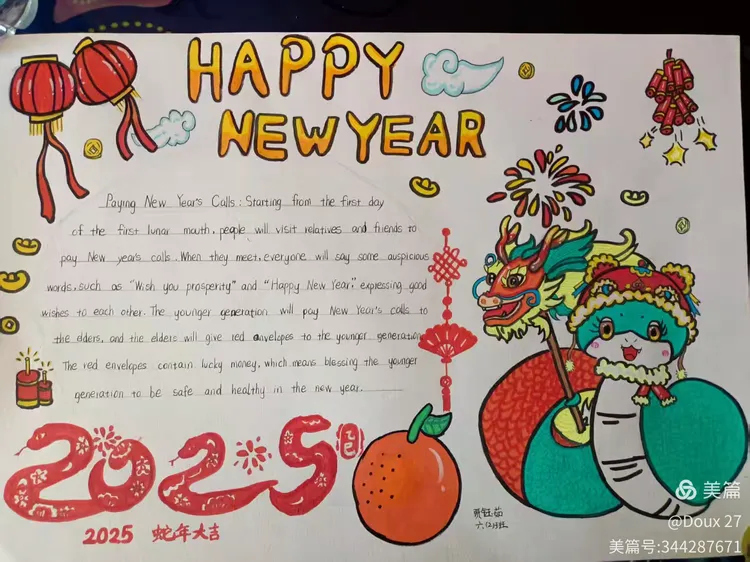 HAPPY
NEW YEAR
Paying New Year's Calls: Starting from the first day
of the first lunar mouth, people will visit relatives and friends to
pay New year's calls. When they meet, everyone will say some auspicious
words, such as "Wish you prosperity" and "Happy New Year," expressing good
wishes to each other. The younger generation will pay New Year's calls to
the elders, and the elders will give red anvelopes to the younger generation
The red envelopes contain lucky money, which means blessing the younger
generation to be safe and healthy in the new year.
2025
乙巳
2025 蛇年大吉
美篇
@Doux 27
美篇号:344287671